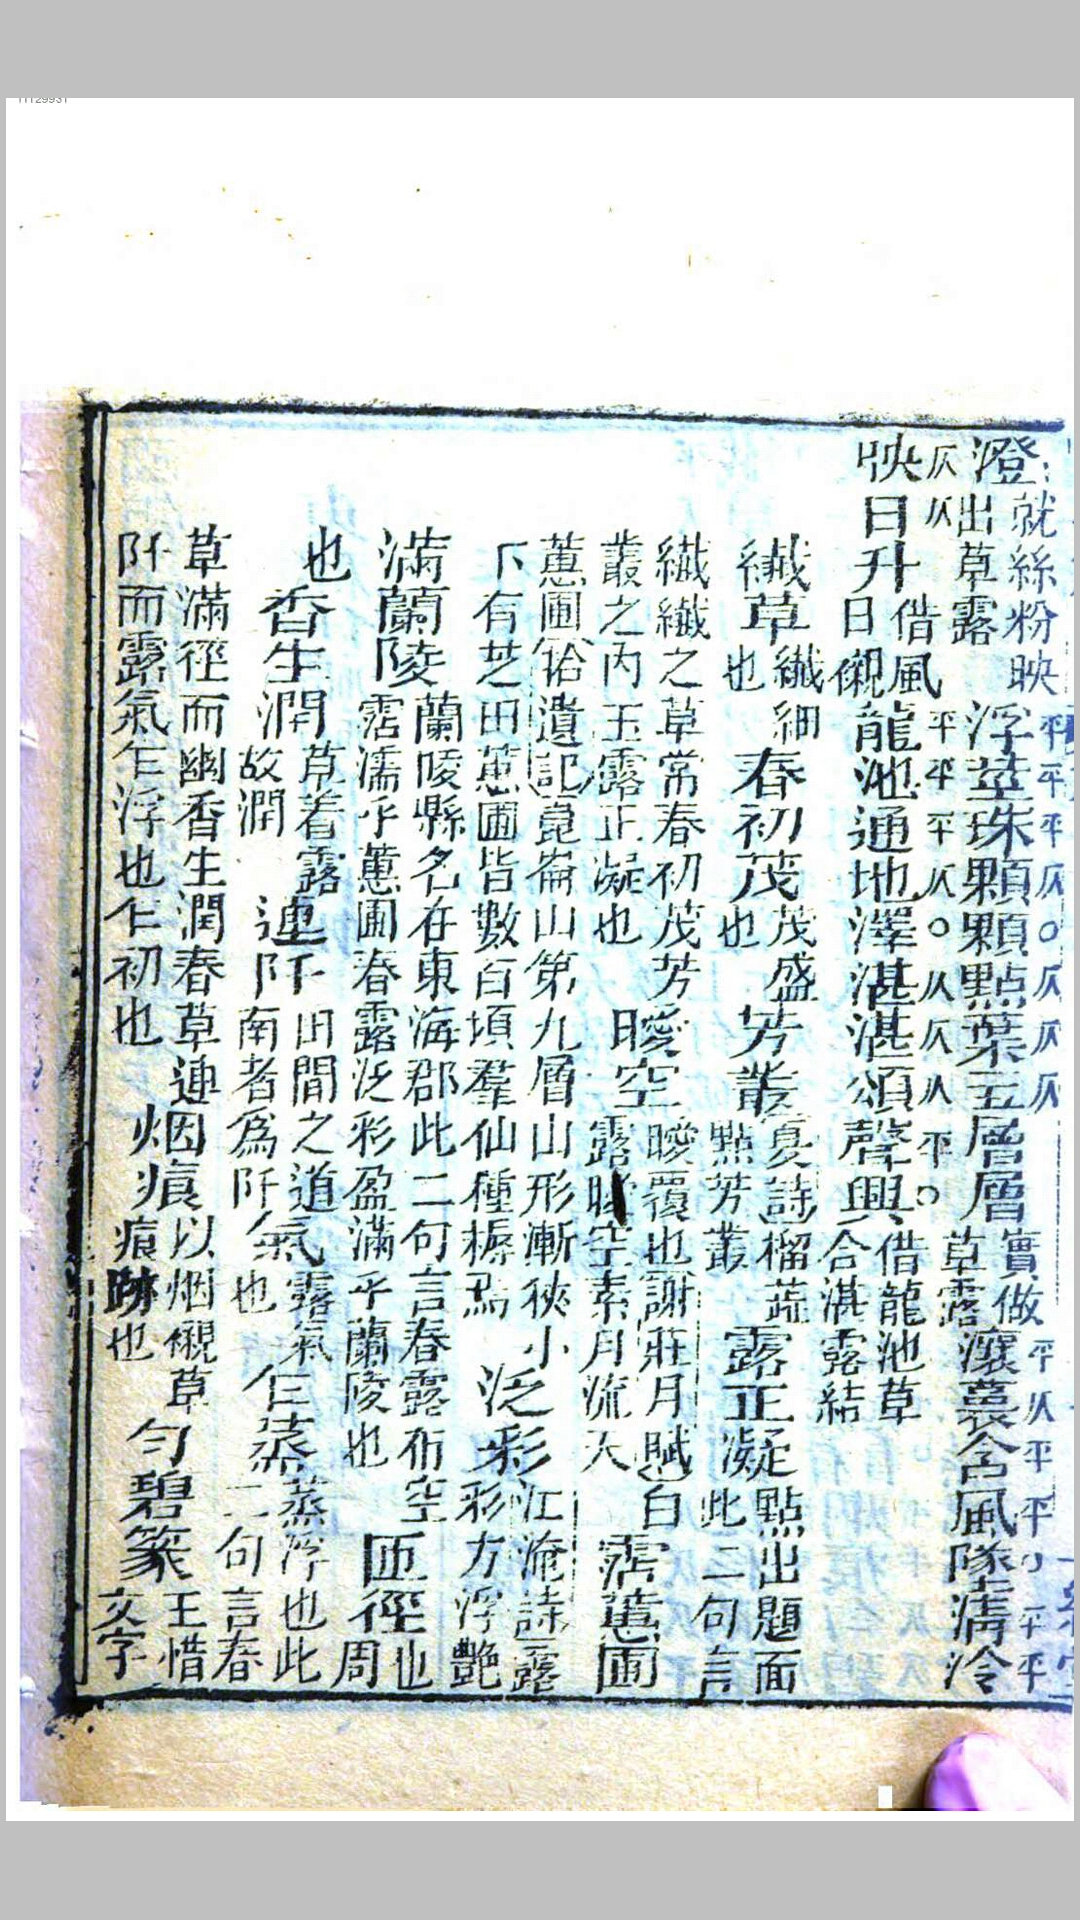 澄出草露
就絲粉映
浮莖珠顆顆點葉玉層層
草露
實做
瀼蕞含風隊清冷
平平平仄○仄仄仄
平仄平平
平平
映日升
日襯
借風
龍池通地澤湛湛頌聲興
合湛露結
借龍池草
仄仄
平平平仄○仄仄仄平○
纖草
纖細
也
春初茂
茂盛
也
芳叢
夏詩榴蔬
點芳叢
露正凝
點出題面
此二句言
纖纖之草常春初茂芳
叢之內玉露正凝也
曖空
曖覆也謝莊月賦白
露曖空素月流天
霑蕙圃
蕙圃
拾遺記崑崙山第九層山形漸狹小
下有芝田蕙圃皆數百頃羣仙種耨焉
泛彩
江淹詩露
彩方浮艷
滿蘭陵
蘭陵縣名在東海郡此二句言春露布空
霑濡乎蕙圃春露泛彩盈滿乎蘭陵也
匝徑
也
周
也
香生潤
草着露
故潤
連阡
田間之道
南者為阡
氣
露氣
也
乍蒸
蒸浮也此
二句言春
草滿徑而幽香生潤春草連
阡而露氣乍浮也乍初也
烟痕
以烟襯草
痕跡也
勻碧篆
王惜
文字